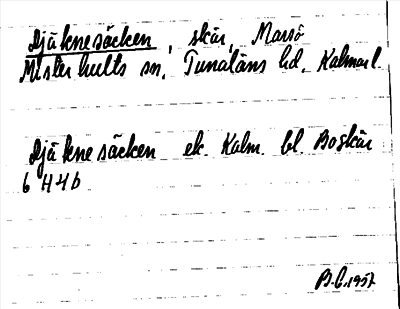 Djäknesäcken, skär, Marsö
Misterhults sn, Tunaläns hd, Kalmar l.
Djäknesäcken ek. Kalm. bl. Boskär
6 H 4 b
B.G. 1957